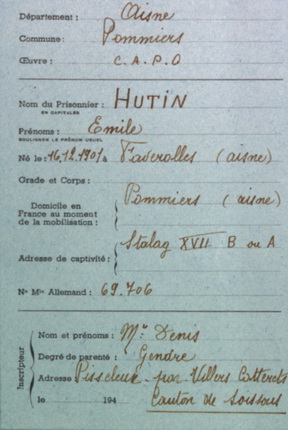 Département : Aisne
Commune : Pommiers
Œuvre : C.A.P.O
Nom du Prisonnier : HUTIN
EN CAPITALES
Prénoms : Emile
SOULIGNER LE PRÉNOM USUEL
Né le : 16.12.1907 à Faverolles (aisne)
Grade et Corps :
Domicile en
France au moment
de la mobilisation :
Pommiers (aisne)
Adresse de captivité :
Stalag XVII B ou A
N° Mle Allemand : 69.706
Inscripteur
Nom et prénoms : Mr Denis
Degré de parenté : Gendre
Adresse Pisseleux par Villers Cotterets
le 194 Canton de Soissons